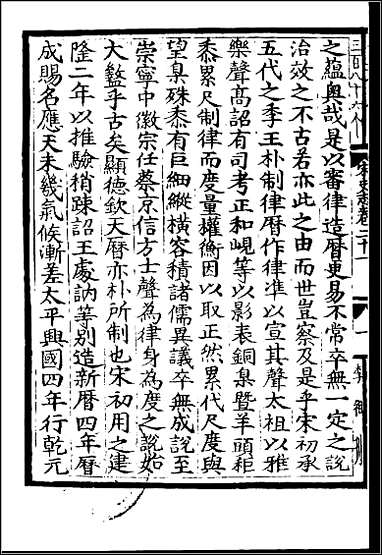 之蘊奧哉是以審律造曆更易不常卒無一定之說
治效之不古若亦此之由而世豈察及是乎宋初承
五代之季王朴制律曆作律準以宣其聲太祖以雅
樂聲高詔有司考正和峴等以影表銅臬暨羊頭秬
黍累尺制律而度量權衡因以取正然累代尺度與
望臬殊黍有巨細縱橫容積諸儒異議卒無成說至
崇寧中徽宗任蔡京信方士聲為律身為度之說始
大盭乎古矣顯德欽天曆亦朴所制也宋初用之建
隆二年以推驗稍踈詔王處訥等別造新曆四年曆
成賜名應天未幾氣候漸差太平興國四年行乾元